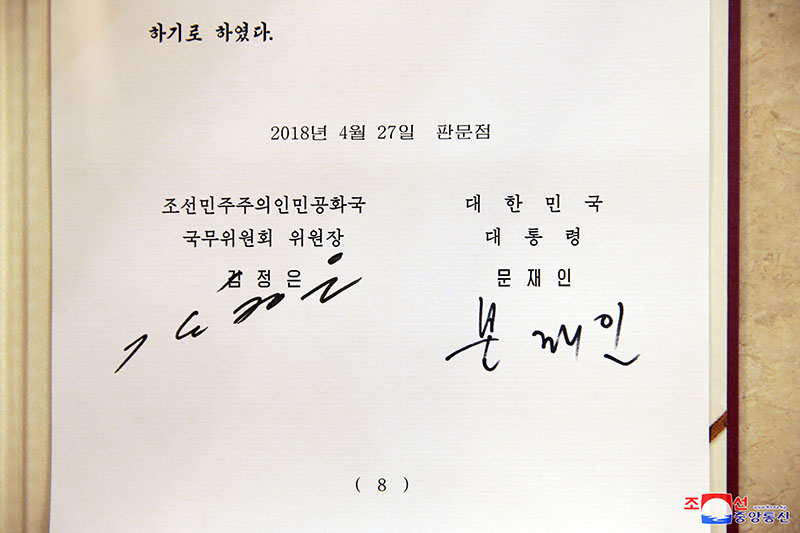 하기로 하였다.
2018년 4월 27일 판문점
조선민주주의인민공화국
국무위원회 위원장
김정은
대한민국
대통령
문재인
문재인
( 8 )
조선
중앙통신